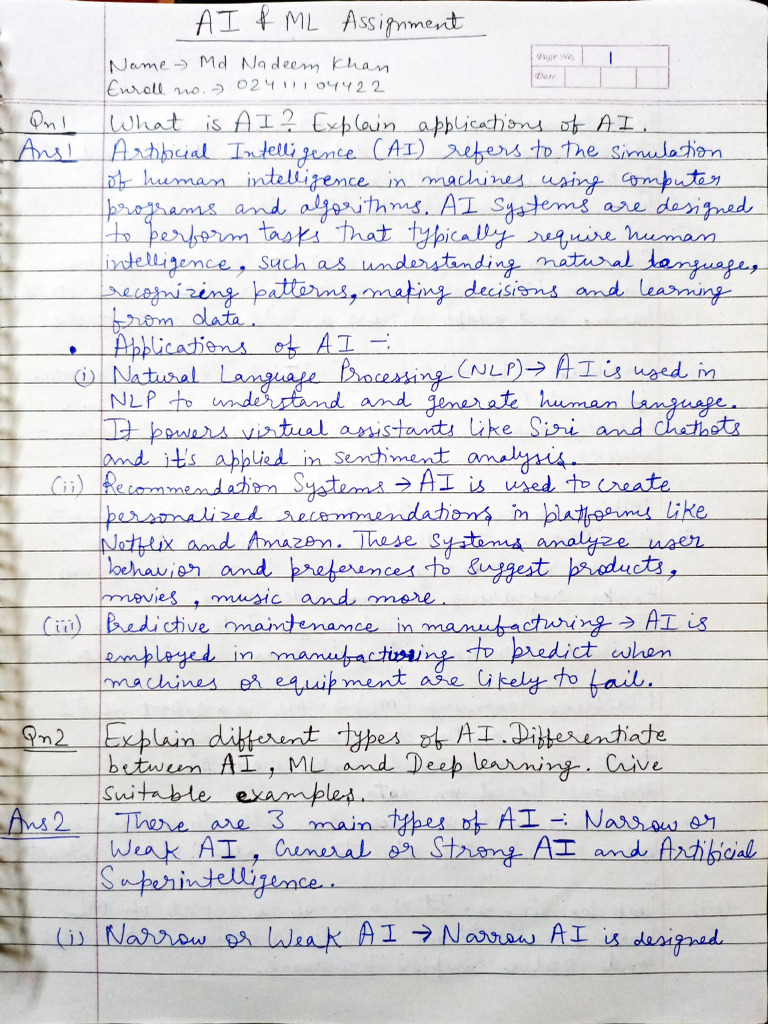 AI & ML Assignment
Name → Md Nadeem Khan
Page No. 1
Enroll no. → 02411104422
Date.
Qn1 What is AI? Explain applications of AI.
Ans1 Artificial Intelligence (AI) refers to the simulation
of human intelligence in machines using computer
programs and algorithms. AI systems are designed
to perform tasks that typically require human
intelligence, such as understanding natural language,
recognizing patterns, making decisions and learning
from data.
• Applications of AI -:
(i) Natural Language Processing (NLP) → AI is used in
NLP to understand and generate human language.
It powers virtual assistants like Siri and chatbots
and it's applied in sentiment analysis.
(ii) Recommendation Systems → AI is used to create
personalized recommendations in platforms like
Netflix and Amazon. These systems analyze user
behavior and preferences to suggest products,
movies, music and more.
(iii) Predictive maintenance in manufacturing → AI is
employed in manufacturing to predict when
machines or equipment are likely to fail.
Qn2 Explain different types of AI. Differentiate
between AI, ML and Deep learning. Give
suitable examples.
Ans2 There are 3 main types of AI -: Narrow or
Weak AI, General or Strong AI and Artificial
Superintelligence.
(i) Narrow or Weak AI → Narrow AI is designed